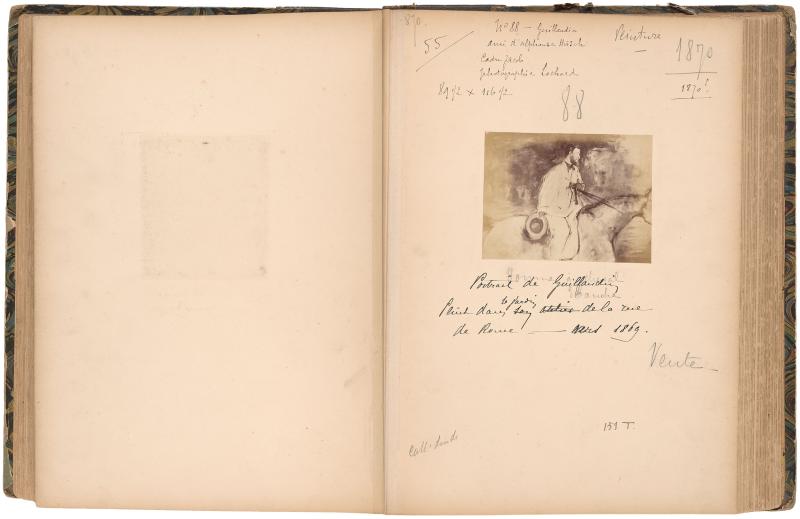 870.
55
No 88 — Guillaudin
ami d'Alphonse Hirsch
Cadre Jacob
photographie Lochard
89 1/2 x 116 1/2
Peinture
1870
1870?
88
Portrait de Guillaudin
Peint dans le jardin son atelier de la rue
de Rome — vers 1869.
Vente
151 T.